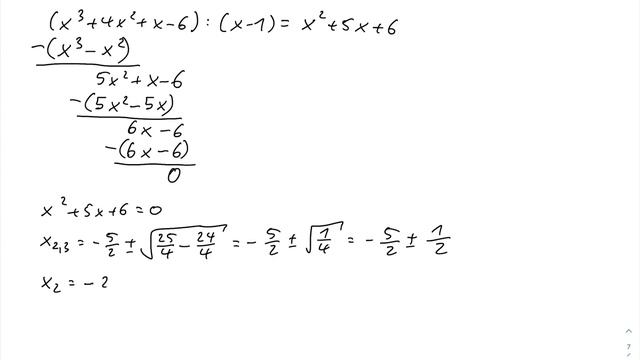 (x³+4x²+x-6) : (x-1) = x²+5x+6
-(x³-x²)
5x²+x-6
-(5x²-5x)
6x-6
-(6x-6)
0
x²+5x+6=0
x₂,₃ = -5/2 ± √(25/4 - 24/4) = -5/2 ± √(1/4) = -5/2 ± 1/2
x₂ = -2
7